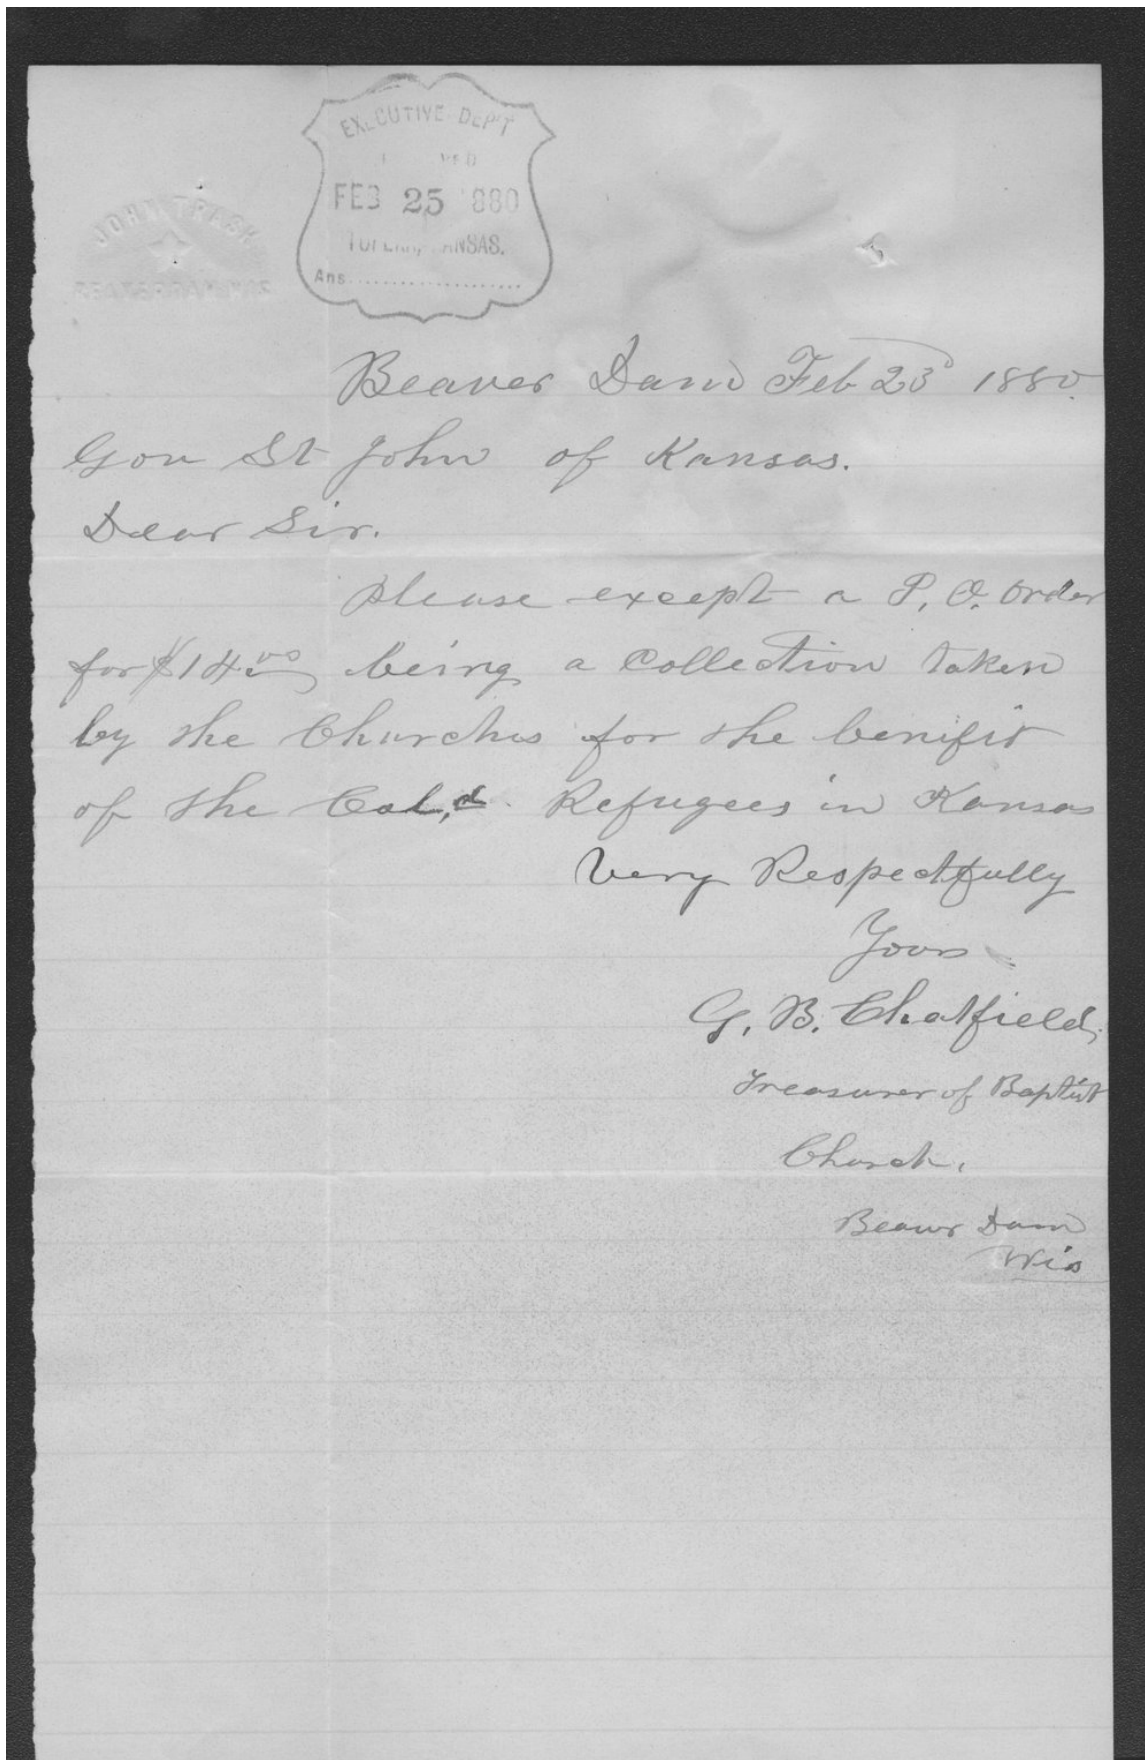 EXECUTIVE DEP'T
FEB 25 1880
TOPEKA, KANSAS.
Ans....................
JOHN TRASK
BEAVER DAM WIS
Beaver Dam Feb 23d 1880.
Gov St John of Kansas.
Dear Sir.
Please except a P. O. Order
for $14.00 being a Collection taken
by the Churches for the benifit
of the Col,d. Refugees in Kansas
Very Respectfully
Yours
G. B. Chatfield,
Treasurer of Baptist
Church,
Beaver Dam
Wis